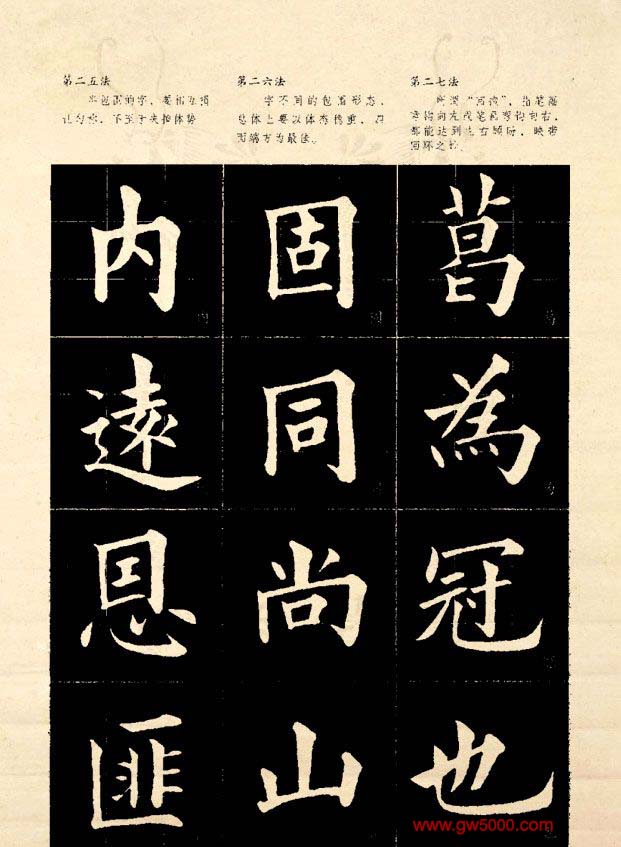 第二五法
半包围的字，要相互
第二六法
字不同的包围形态，
总体上要以体态稳重，四
面端方为最佳。
第二七法
所谓“回抱”，指笔画
弯钩向左或笔画弯钩向右，
都能达到左右顾盼，映带
回环之妙。
内 固 菖
遠 同 為
恩 尚 冠
匪 山 也
www.gw5000.com